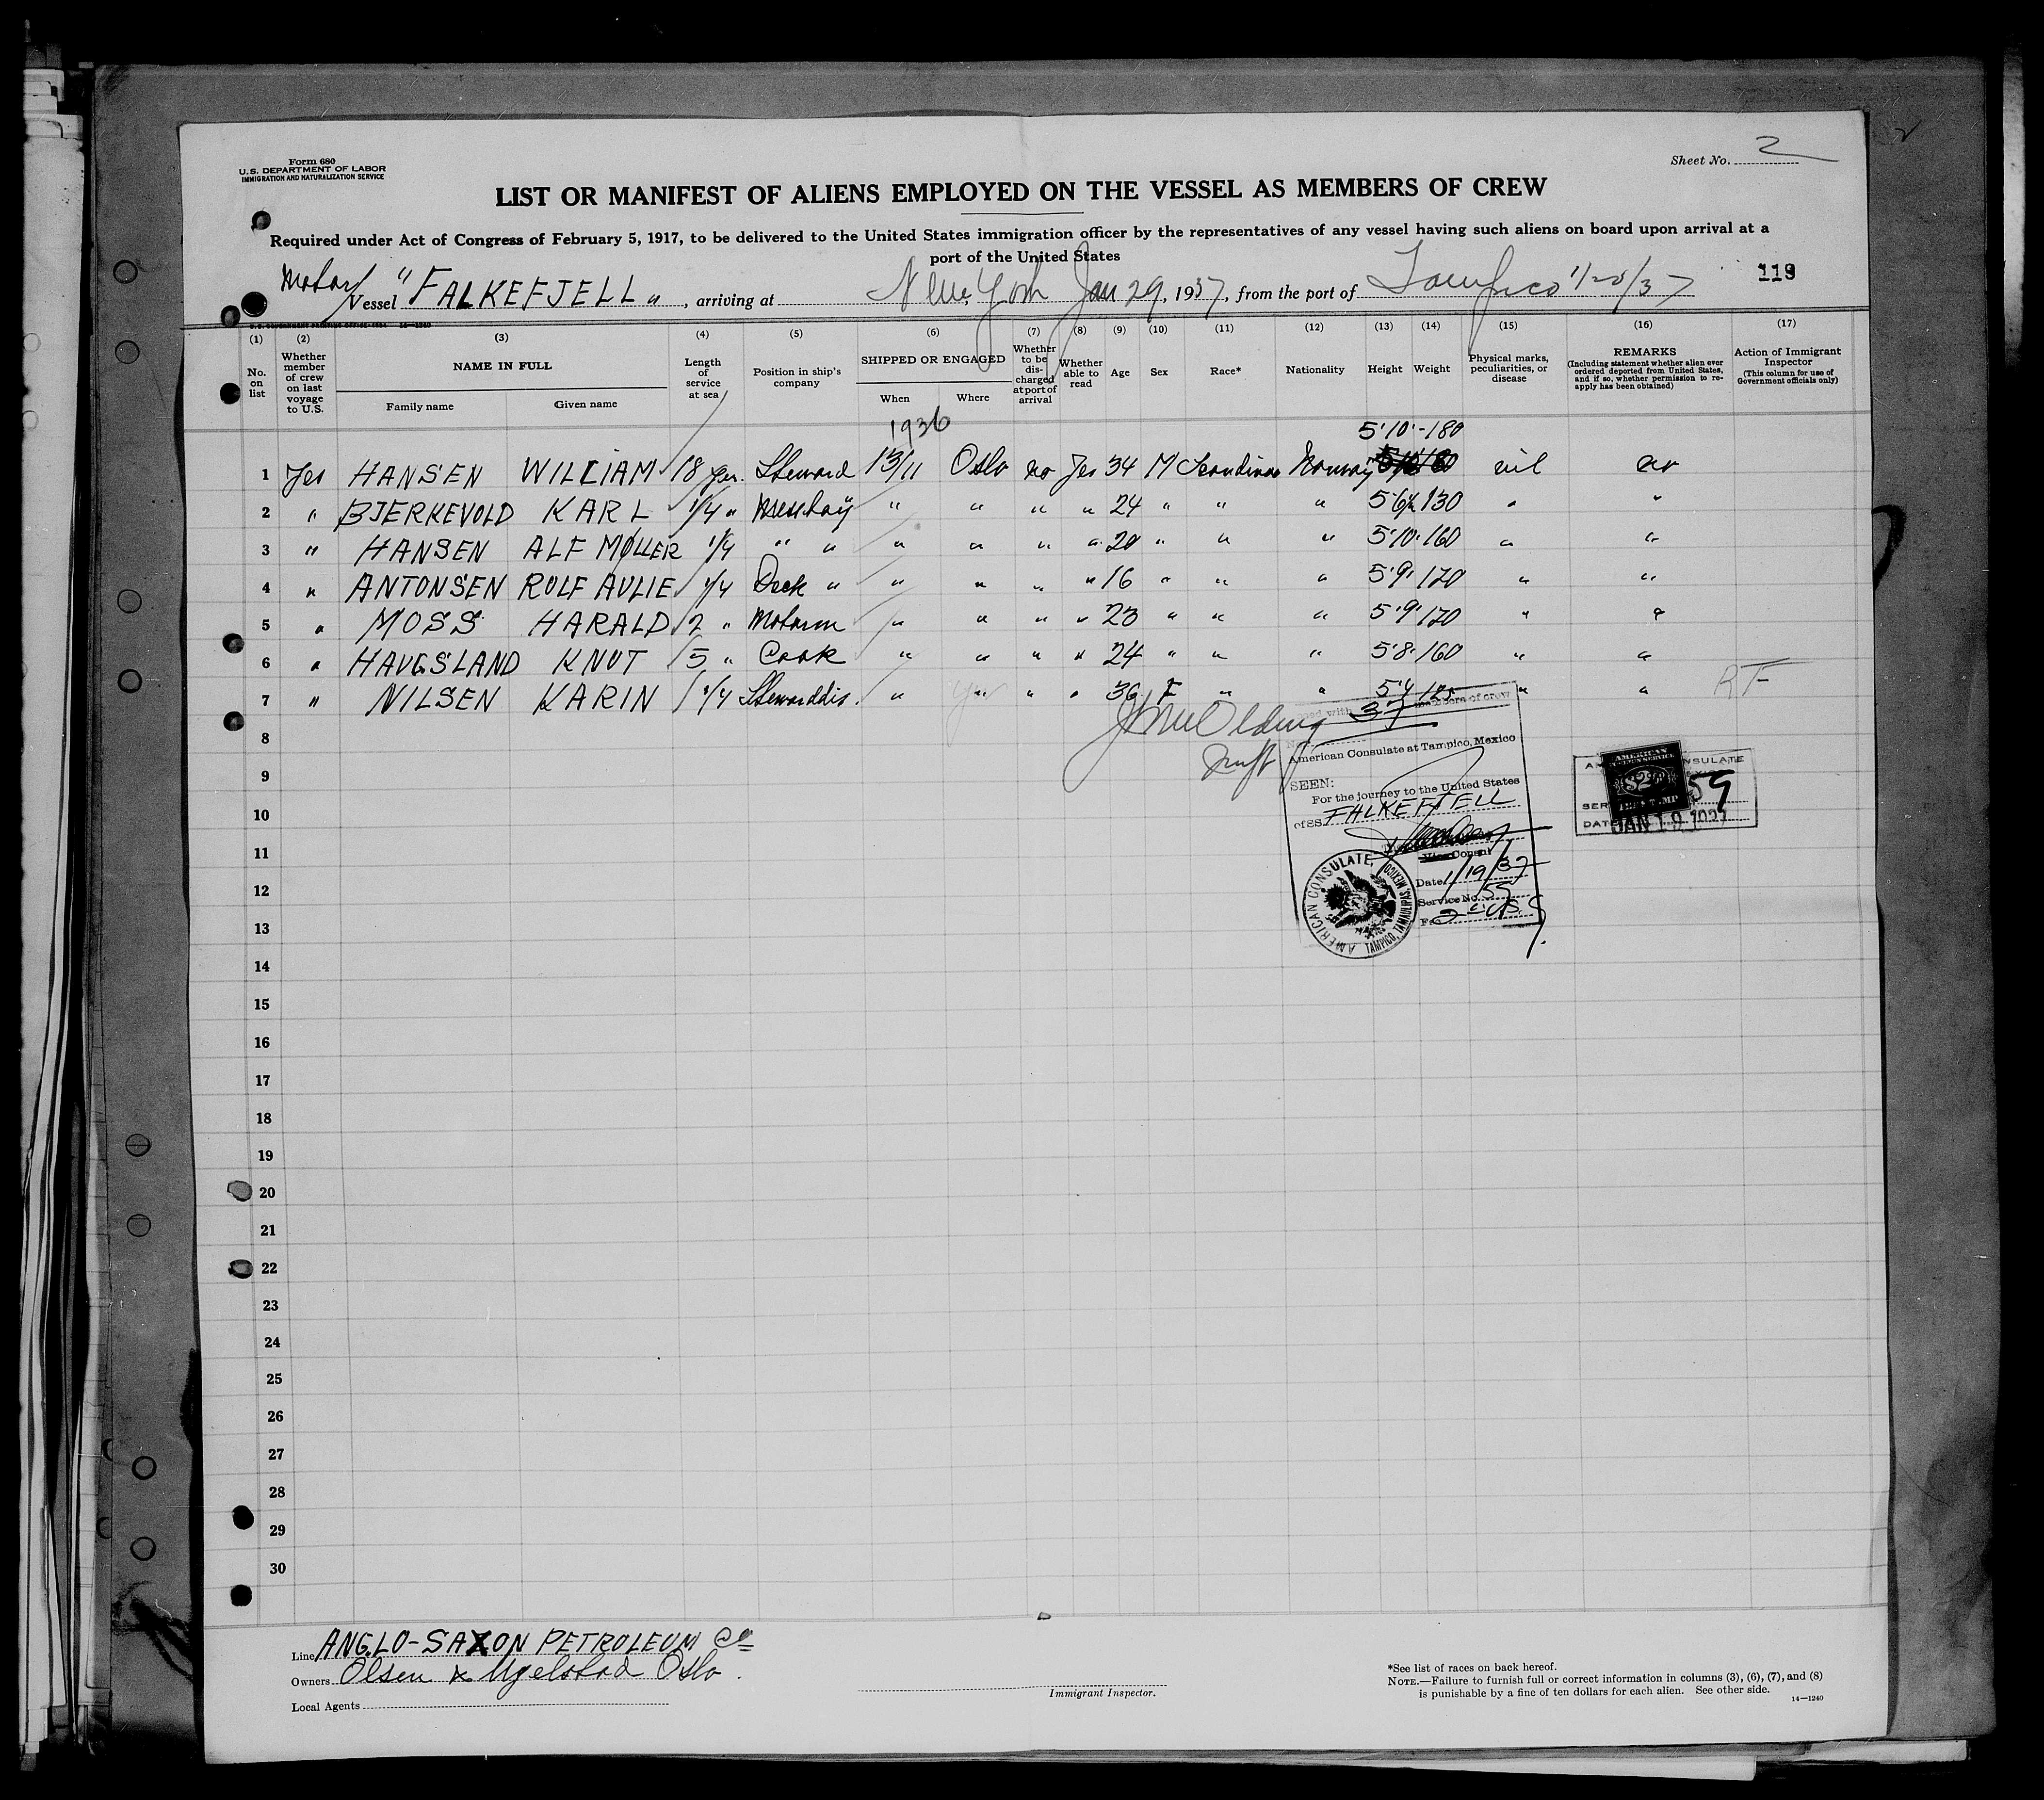 Form 680
U.S. DEPARTMENT OF LABOR
IMMIGRATION AND NATURALIZATION SERVICE
Sheet No. 2
LIST OR MANIFEST OF ALIENS EMPLOYED ON THE VESSEL AS MEMBERS OF CREW
Required under Act of Congress of February 5, 1917, to be delivered to the United States immigration officer by the representatives of any vessel having such aliens on board upon arrival at a
port of the United States
Motor Vessel "FALKEFJELL", arriving at New York Jan 29, 1937, from the port of Tampico 1/20/37
119
U.S. GOVERNMENT PRINTING OFFICE: 1934 14—1240
(1) (2) (3) (4) (5) (6) (7) (8) (9) (10) (11) (12) (13) (14) (15) (16) (17)
No. on list
Whether member of crew on last voyage to U.S.
NAME IN FULL
Family name Given name
Length of service at sea
Position in ship's company
SHIPPED OR ENGAGED
When Where
Whether to be discharged at port of arrival
Whether able to read
Age
Sex
Race*
Nationality
Height
Weight
Physical marks, peculiarities, or disease
REMARKS
(Including statement whether alien ever ordered deported from United States, and if so, whether permission to reapply has been obtained)
Action of Immigrant Inspector
(This column for use of Government officials only)
1936
5'10"-180
1 Yes HANSEN WILLIAM 18 yrs. Steward 13/11 Oslo no Yes 34 M Scandinav Norway nil no
2 " BJERKEVOLD KARL 1/4 " Messboy " " " " 24 " " " 5'6½ 130 " "
3 " HANSEN ALF MØLLER 1/4 " " " " " " 20 " " " 5'10" 160 " "
4 " ANTONSEN ROLF AULIE 1/4 Deck " " " " " 16 " " " 5'9" 170 " "
5 " MOSS HARALD 2 " Motorm " " " " 23 " " " 5'9" 170 " "
6 " HAUGSLAND KNUT 5 " Cook " " " " 24 " " " 5'8" 160 " "
7 " NILSEN KARIN 1/4 Stewarddis. " " " " 36 F " " 5'4 125 " " RF
8
9
10
11
12
13
14
15
16
17
18
19
20
21
22
23
24
25
26
27
28
29
30
with 37 members of crew
American Consulate at Tampico, Mexico
SEEN:
For the journey to the United States
of SS. FALKEFJELL
Vice Consul
Date 1/19/37
Service No. 159
Fee 2.00 U.S.
AMERICAN CONSULATE, TAMPICO, TAMAULIPAS, MEXICO
AMERICAN
FOREIGN SERVICE
$2
FEE STAMP
CONSULATE
59
DATE JAN 19 1937
Line ANGLO-SAXON PETROLEUM Co
Owners Olsen & Ugelstad Oslo.
Local Agents
Immigrant Inspector.
*See list of races on back hereof.
NOTE.—Failure to furnish full or correct information in columns (3), (6), (7), and (8)
is punishable by a fine of ten dollars for each alien. See other side.
14—1240